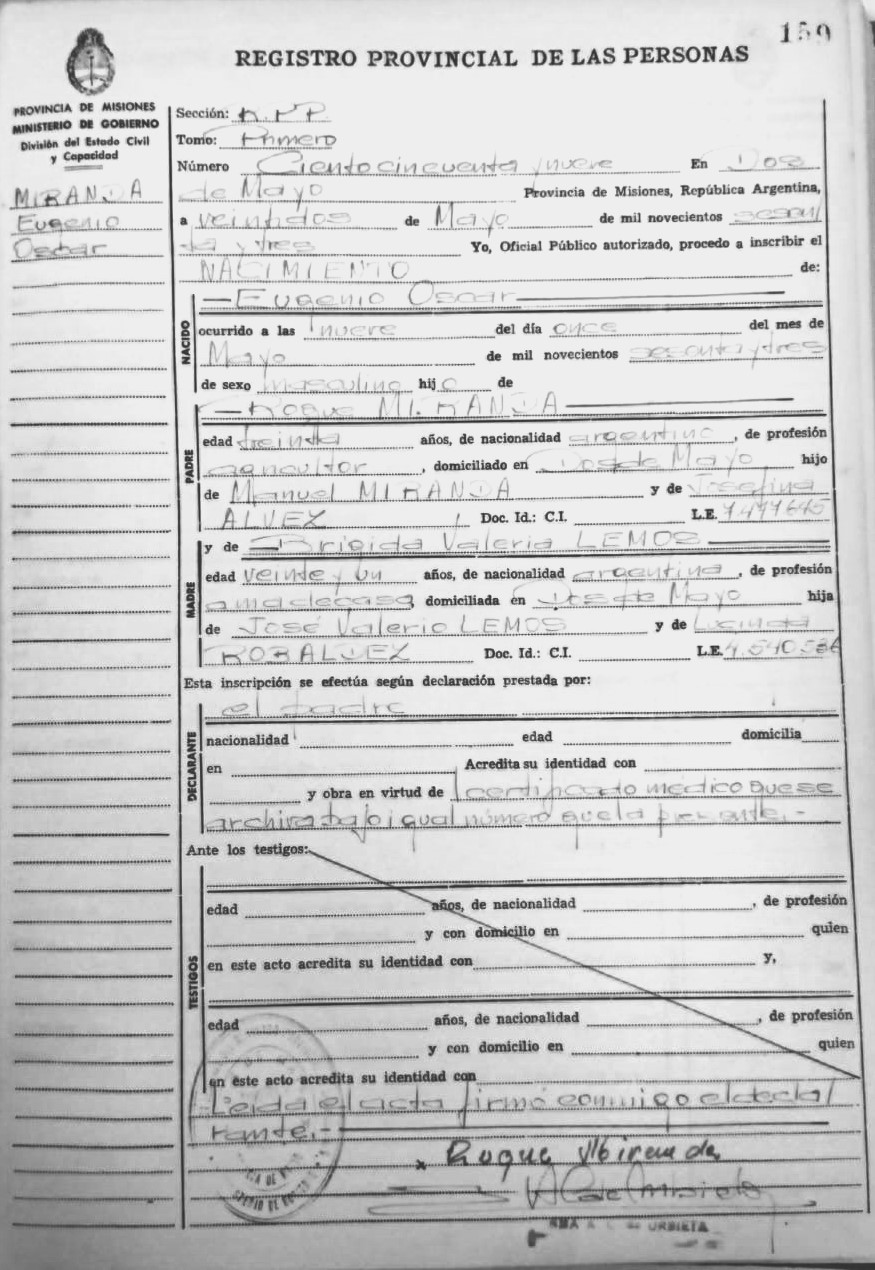 159
REGISTRO PROVINCIAL DE LAS PERSONAS
PROVINCIA DE MISIONES
MINISTERIO DE GOBIERNO
División del Estado Civil
y Capacidad
MIRANDA
Eugenio
Oscar
Sección:
Tomo: Primero
Número Ciento cincuenta y nueve En Dos
de Mayo Provincia de Misiones, República Argentina,
a veintidos de Mayo de mil novecientos sesen/
ta y tres Yo, Oficial Público autorizado, procedo a inscribir el
NACIMIENTO de:
NACIDO
—Eugenio Oscar—
ocurrido a las nueve del día once del mes de
Mayo de mil novecientos sesenta y tres
de sexo masculino hijo de
PADRE
—Roque MIRANDA—
edad treinta años, de nacionalidad argentino, de profesión
agricultor, domiciliado en Dos de Mayo hijo
de Manuel MIRANDA y de Josefina
ALVEZ Doc. Id.: C.I. L.E. 7.477.645
MADRE
y de —Brigida Valeria LEMOS—
edad veinte y un años, de nacionalidad argentina, de profesión
ama de casa, domiciliada en Dos de Mayo hija
de José Valerio LEMOS y de Lucinda
ROBALVEZ Doc. Id.: C.I. L.E. 4.540.536
Esta inscripción se efectúa según declaración prestada por:
DECLARANTE
el padre
nacionalidad edad domicilia
en Acredita su identidad con
y obra en virtud de certificado medico que se
archiva bajo igual número que la presente.-
Ante los testigos:
TESTIGOS
edad años, de nacionalidad , de profesión
y con domicilio en quien
en este acto acredita su identidad con y,
edad años, de nacionalidad , de profesión
y con domicilio en quien
en este acto acredita su identidad con
Leida el acta firmó conmigo el decla/
rante.-
x Roque Miranda
URBIETA